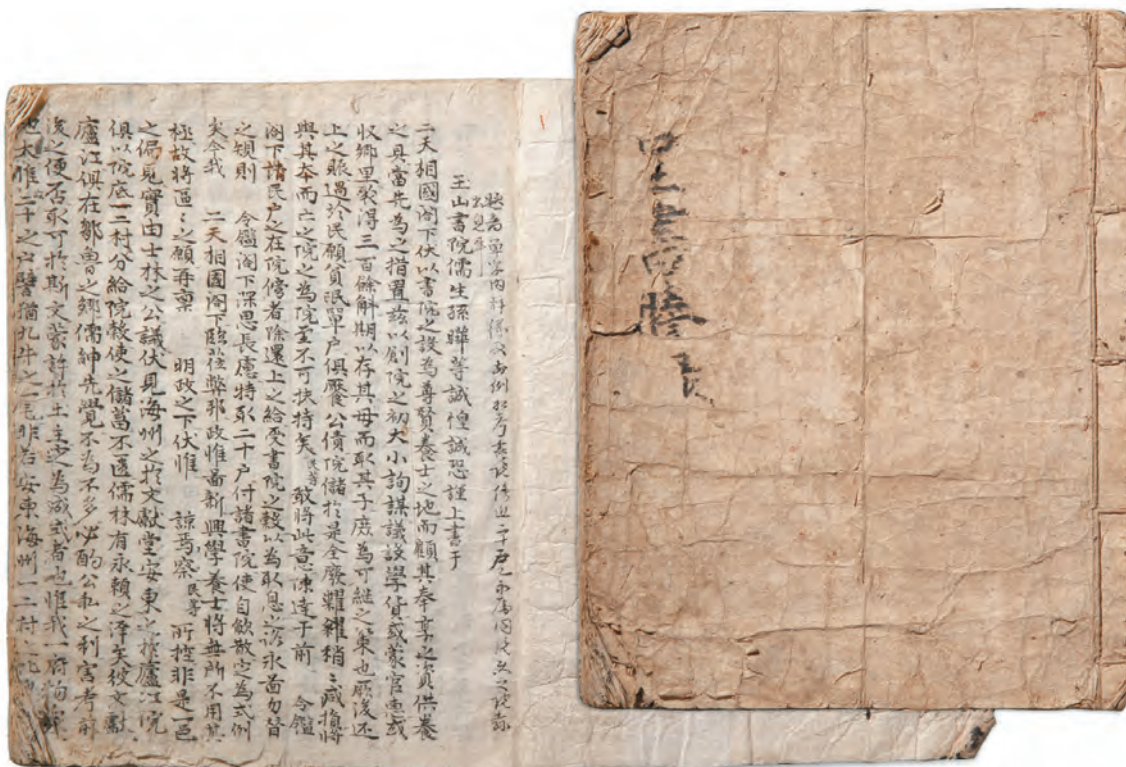 呈書謄
玉山書院儒生孫曄等誠惶誠恐謹上書于
二天相國閤下伏以書院之設為尊賢養士之地而顧其奉享之資供養
之具當先為之措置玆以創院之初大小詢謀議設學貸或蒙官惠或
収鄉里裒得三百餘斛期以存其母而取其子庶為可継之策也厥後还
上之賑遇於民願貧氓單户俱厭公債院儲於是全廢糶糴稍〻減損將
與其本而亡之院之為院至不可扶持矣民等敢將此意陳達于前 令鑑
閤下諸民户之在院傍者除還上之給受書院之穀以為取息之資永啚勿替
之規則 令鑑閤下深思長慮特取二十户付諸書院使自歛散定為式例
矣今我 二天相國閤下臨莅弊邦政惟啚新興學養士將無所不用其
極故將區〻之願再稟 明政之下伏惟 諒焉察民等所控非是一邑
之偏見實由士林之公議伏見海州之於文獻堂安東之於廬江院
俱以院底一二村分給院穀使之儲蓄不匱儒林有永賴之澤矣彼文獻
廬江俱在鄒魯之鄉儒紳先覺不為不多必酌公私之利害考前
後之便否取可於斯文蒙許於土主定為成式者也惟我一府物衆
地大惟二十之户譬猶九牛之一毛非若安東海州一二村之比